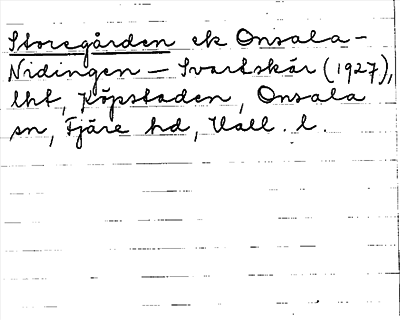 Storegården ek Onsala-
Nidingen - Svartskär (1927),
lht, Köpstaden, Onsala
sn, Fjäre hd, Hall. l.